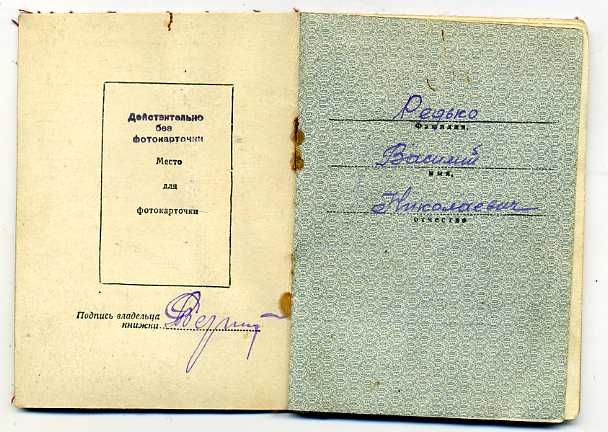 Действительно
без
фотокарточки
Место
для
фотокарточки
Подпись владельца
книжки
Редько
Фамилия,
Василий
имя,
Николаевич
отчество